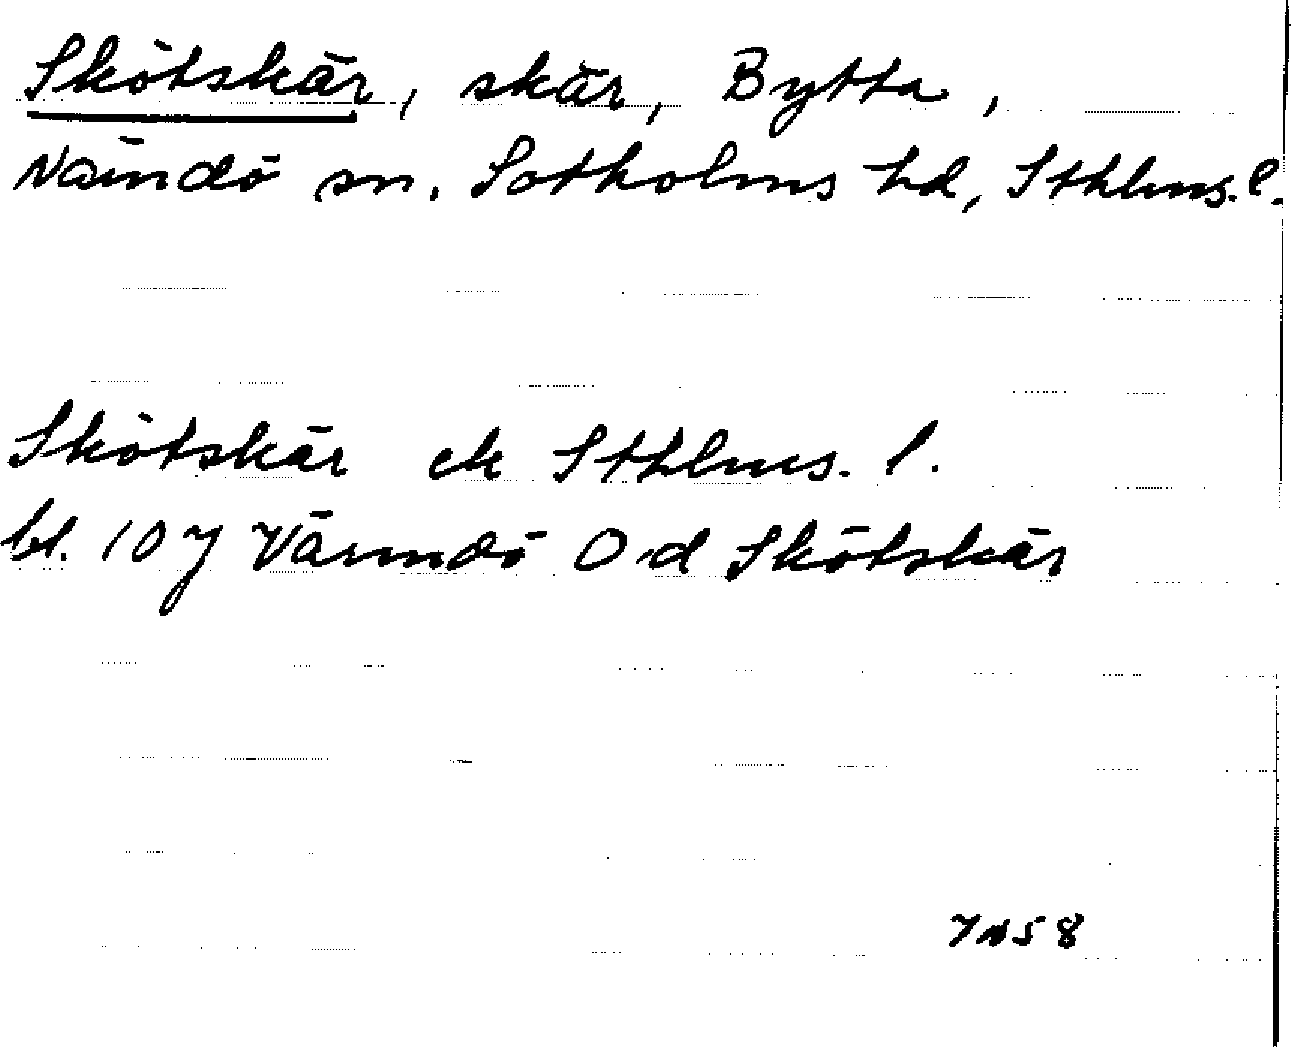 Skötskär, skär, Bytta,
Nämdö sn. Sotholms hd, Sthlms. l.
Skötskär ek Sthlms. l.
bl. 107 Värmdö Od Skötskär
7N58